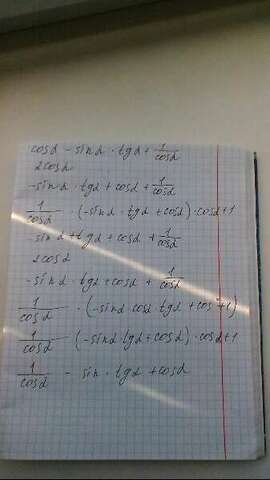 cosα - sinα · tgα + 1/cosα
2cosα
-sinα · tgα + cosα + 1/cosα
1/cosα · (-sinα · tgα + cosα) · cosα + 1
sinα + tgα + cosα + 1/cosα
2cosα
-sinα · tgα + cosα + 1/cosα
1/cosα · (-sinα cosα tgα + cos + 1)
1/cosα (-sinα tgα + cosα) · cosα + 1
1/cosα - sin · tgα + cosα